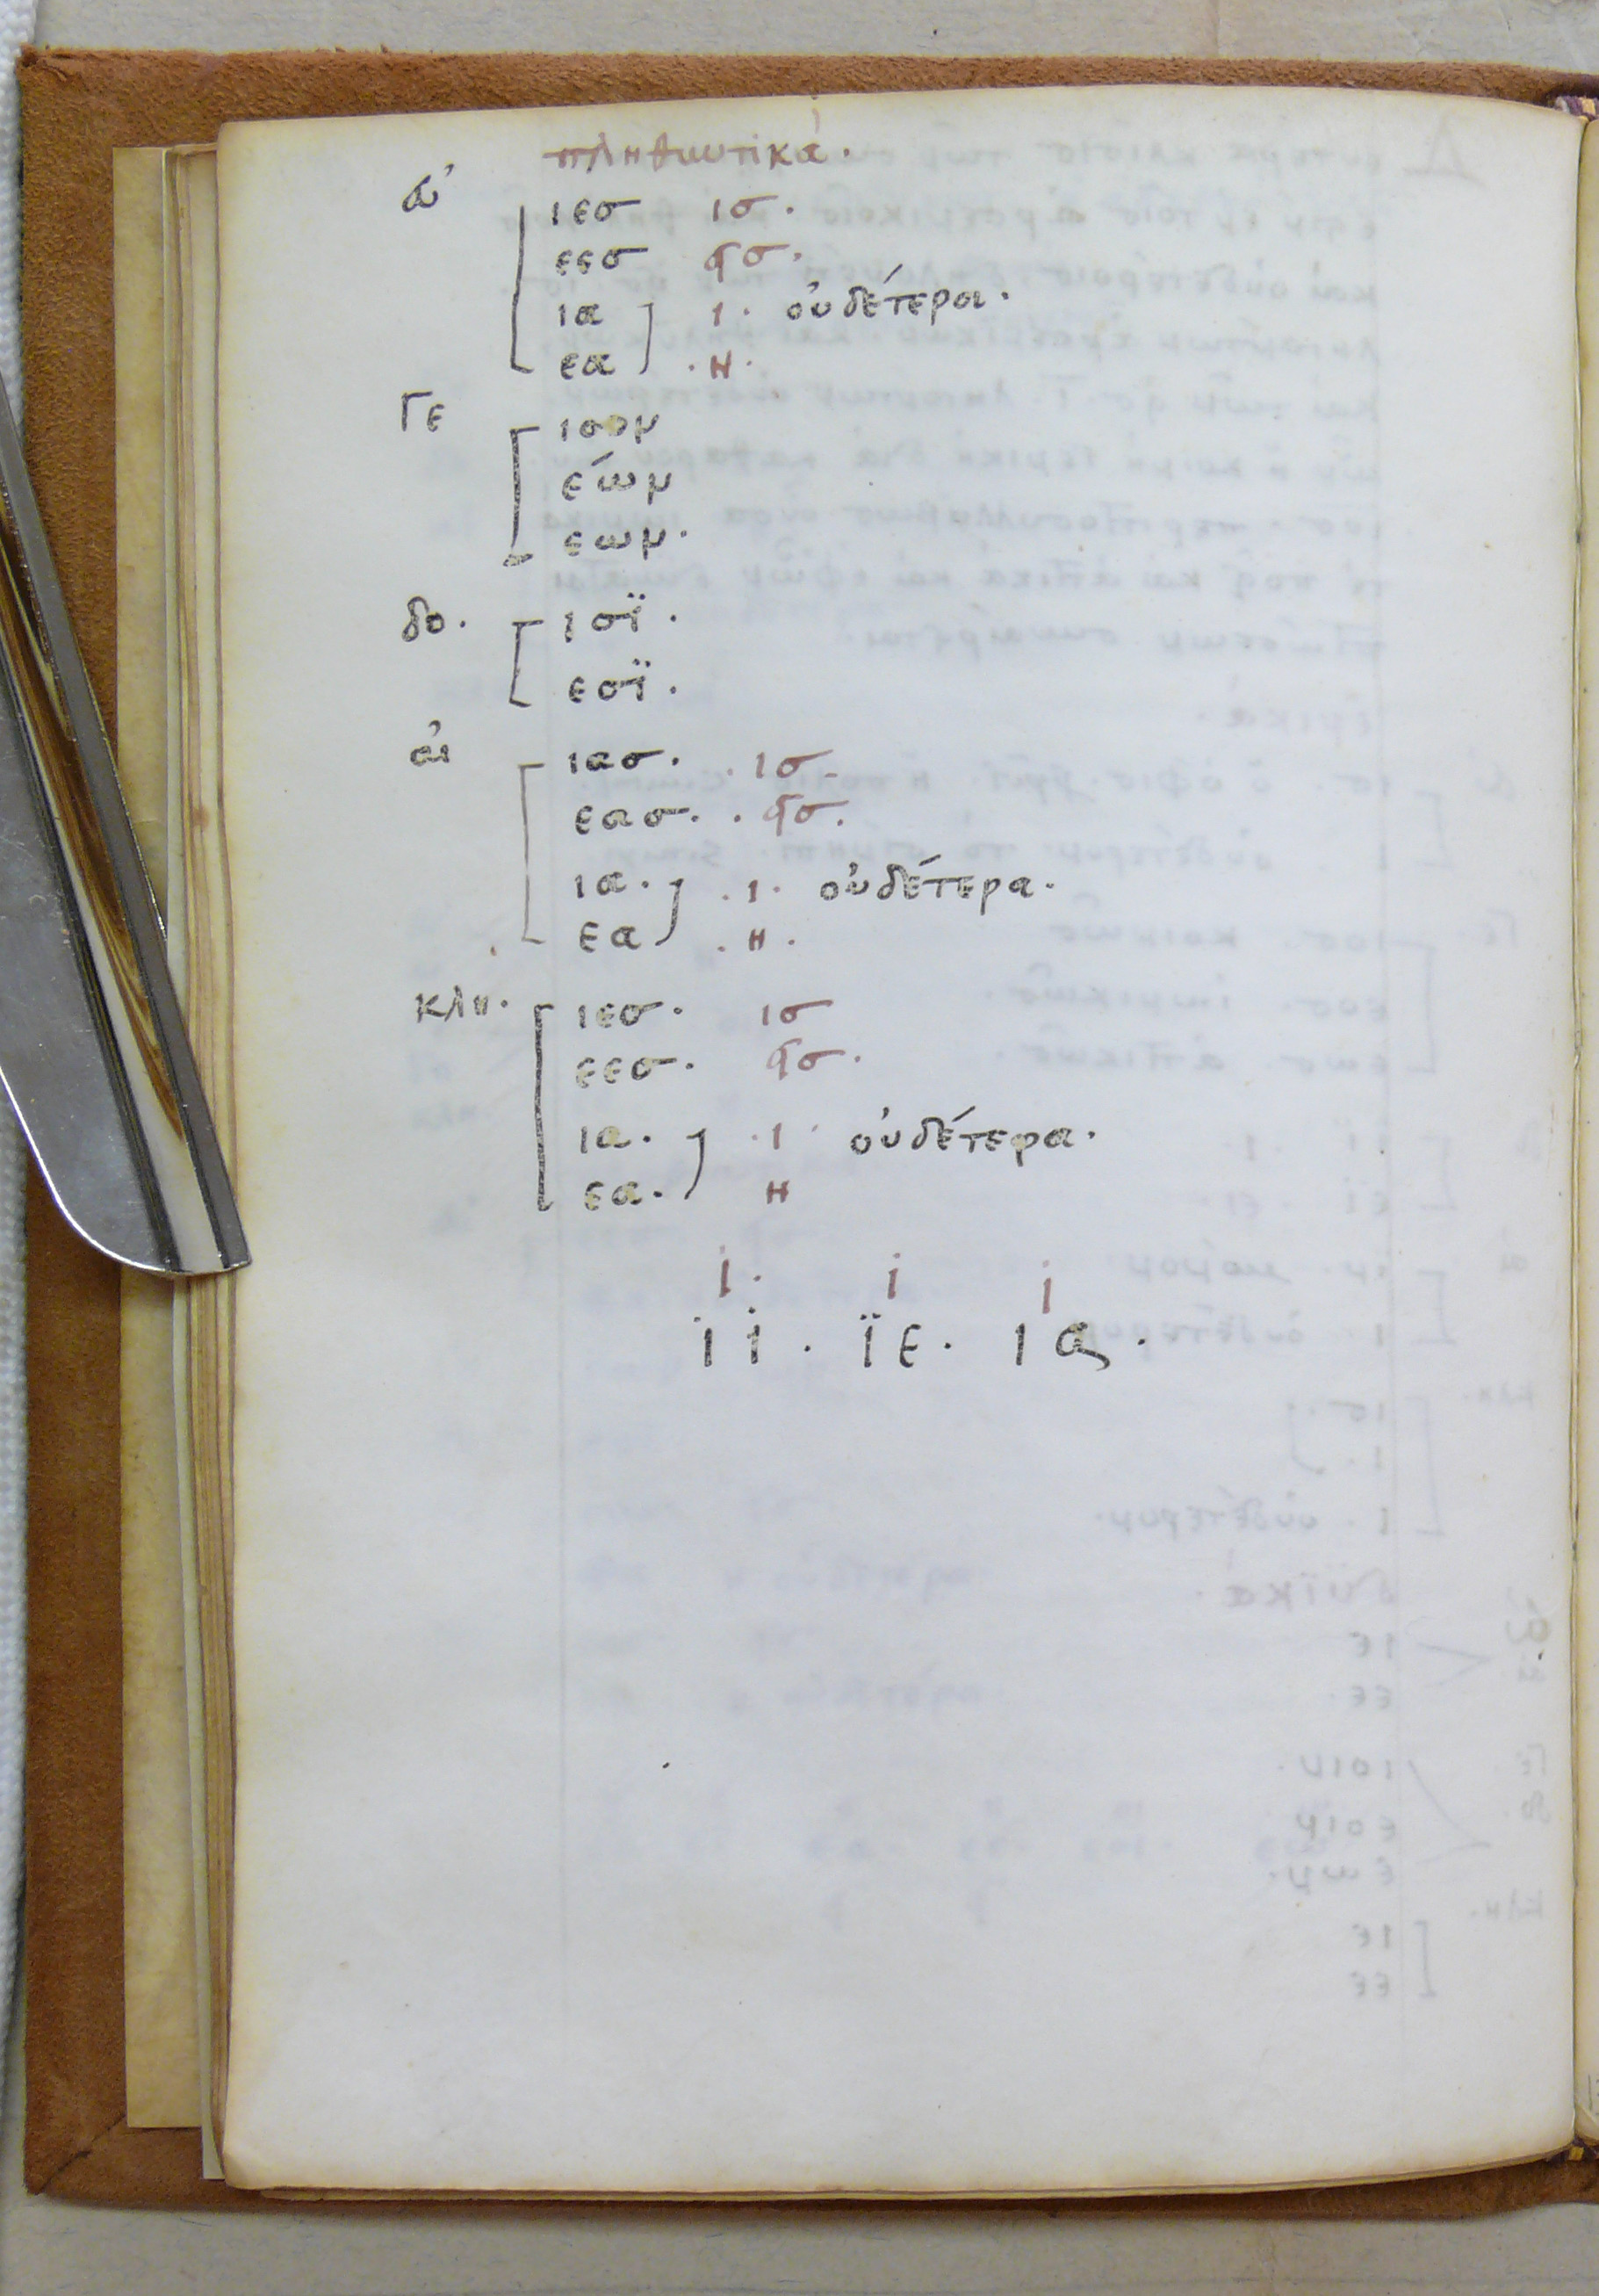 πληθυντικά.
ὀ
ιεσ ισ.
εεσ εισ.
ια ι. οὐδέτερα.
εα .η.
Γε ιοον
εών
εων.
δο. ισϊ.
εσϊ.
αἰ ιασ. .ισ.
εασ. .εισ.
ια. .ι. οὐδέτερα.
εα .η.
κλη. ιεσ. ισ
εεσ. εισ.
ια. .ι. οὐδέτερα.
εα. η
ι. ι ι
ϊι. ϊε. ια.